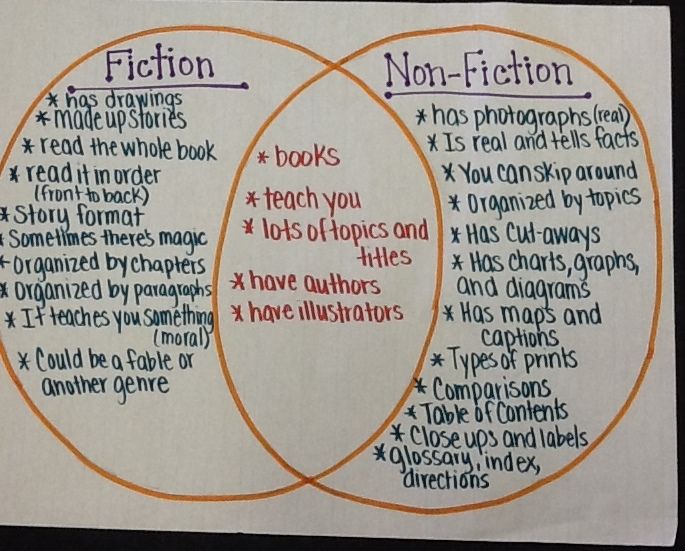 Fiction
* has drawings
* made up stories
* read the whole book
* read it in order
(front to back)
* Story format
* Sometimes there's magic
* Organized by chapters
* Organized by paragraphs
* It teaches you something
(moral)
* Could be a fable or
another genre
* books
* teach you
* lots of topics and
titles
* have authors
* have illustrators
Non-Fiction
* has photographs (real)
* Is real and tells facts
* You can skip around
* Organized by topics
* Has cut-aways
* Has charts, graphs,
and diagrams
* Has maps and
captions
* Types of prints
* Comparisons
* Table of Contents
* Close ups and labels
* glossary, index,
directions